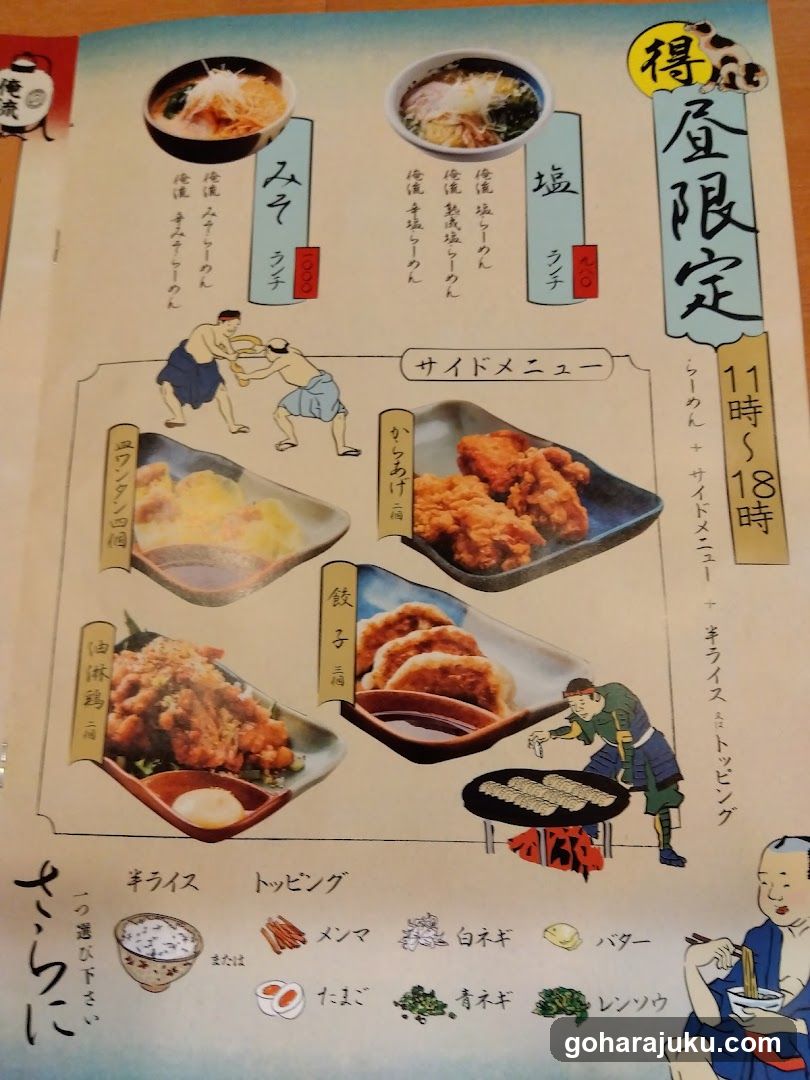 得
昼限定
11時～18時
らーめん + サイドメニュー + 半ライス 又は トッピング
塩 ランチ
九八〇
俺流 塩らーめん
俺流 熟成塩らーめん
俺流 辛塩らーめん
みそ ランチ
一〇〇〇
俺流 みそらーめん
俺流 辛みそらーめん
俺流
サイドメニュー
からあげ 二個
皿ワンタン四個
餃子 三個
油淋鶏 二個
さらに
一つ選び下さい
半ライス
または
トッピング
メンマ
白ネギ
バター
たまご
青ネギ
レンソウ
goharajuku.com